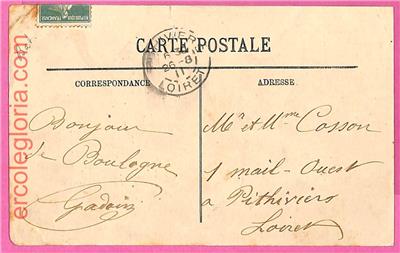 CARTE POSTALE
CORRESPONDANCE
ADRESSE
26-8
11
LOIRET
Bonjour
de Boulogne
Gadoin
Mr et Mme Cosson
1 mail-Ouest
a Pithiviers
Loiret
ercolegloria.com